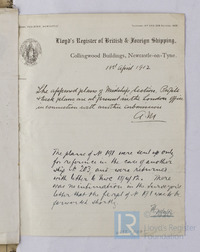 Lloyd's Register of British & Foreign Shipping,
Collingwood Buildings, Newcastle-on-Tyne.
April 1912
The approved plans of Midship Section, Profile
& deck plans are at present in the London Office
in connection with
The plans of No were sent up only
for reference in the case of another
ship and were returned
with letter to There
was no information in the Surveyors
letter that the of No 198 was to be
forwarded shortly
Lloyd's Register
Foundation